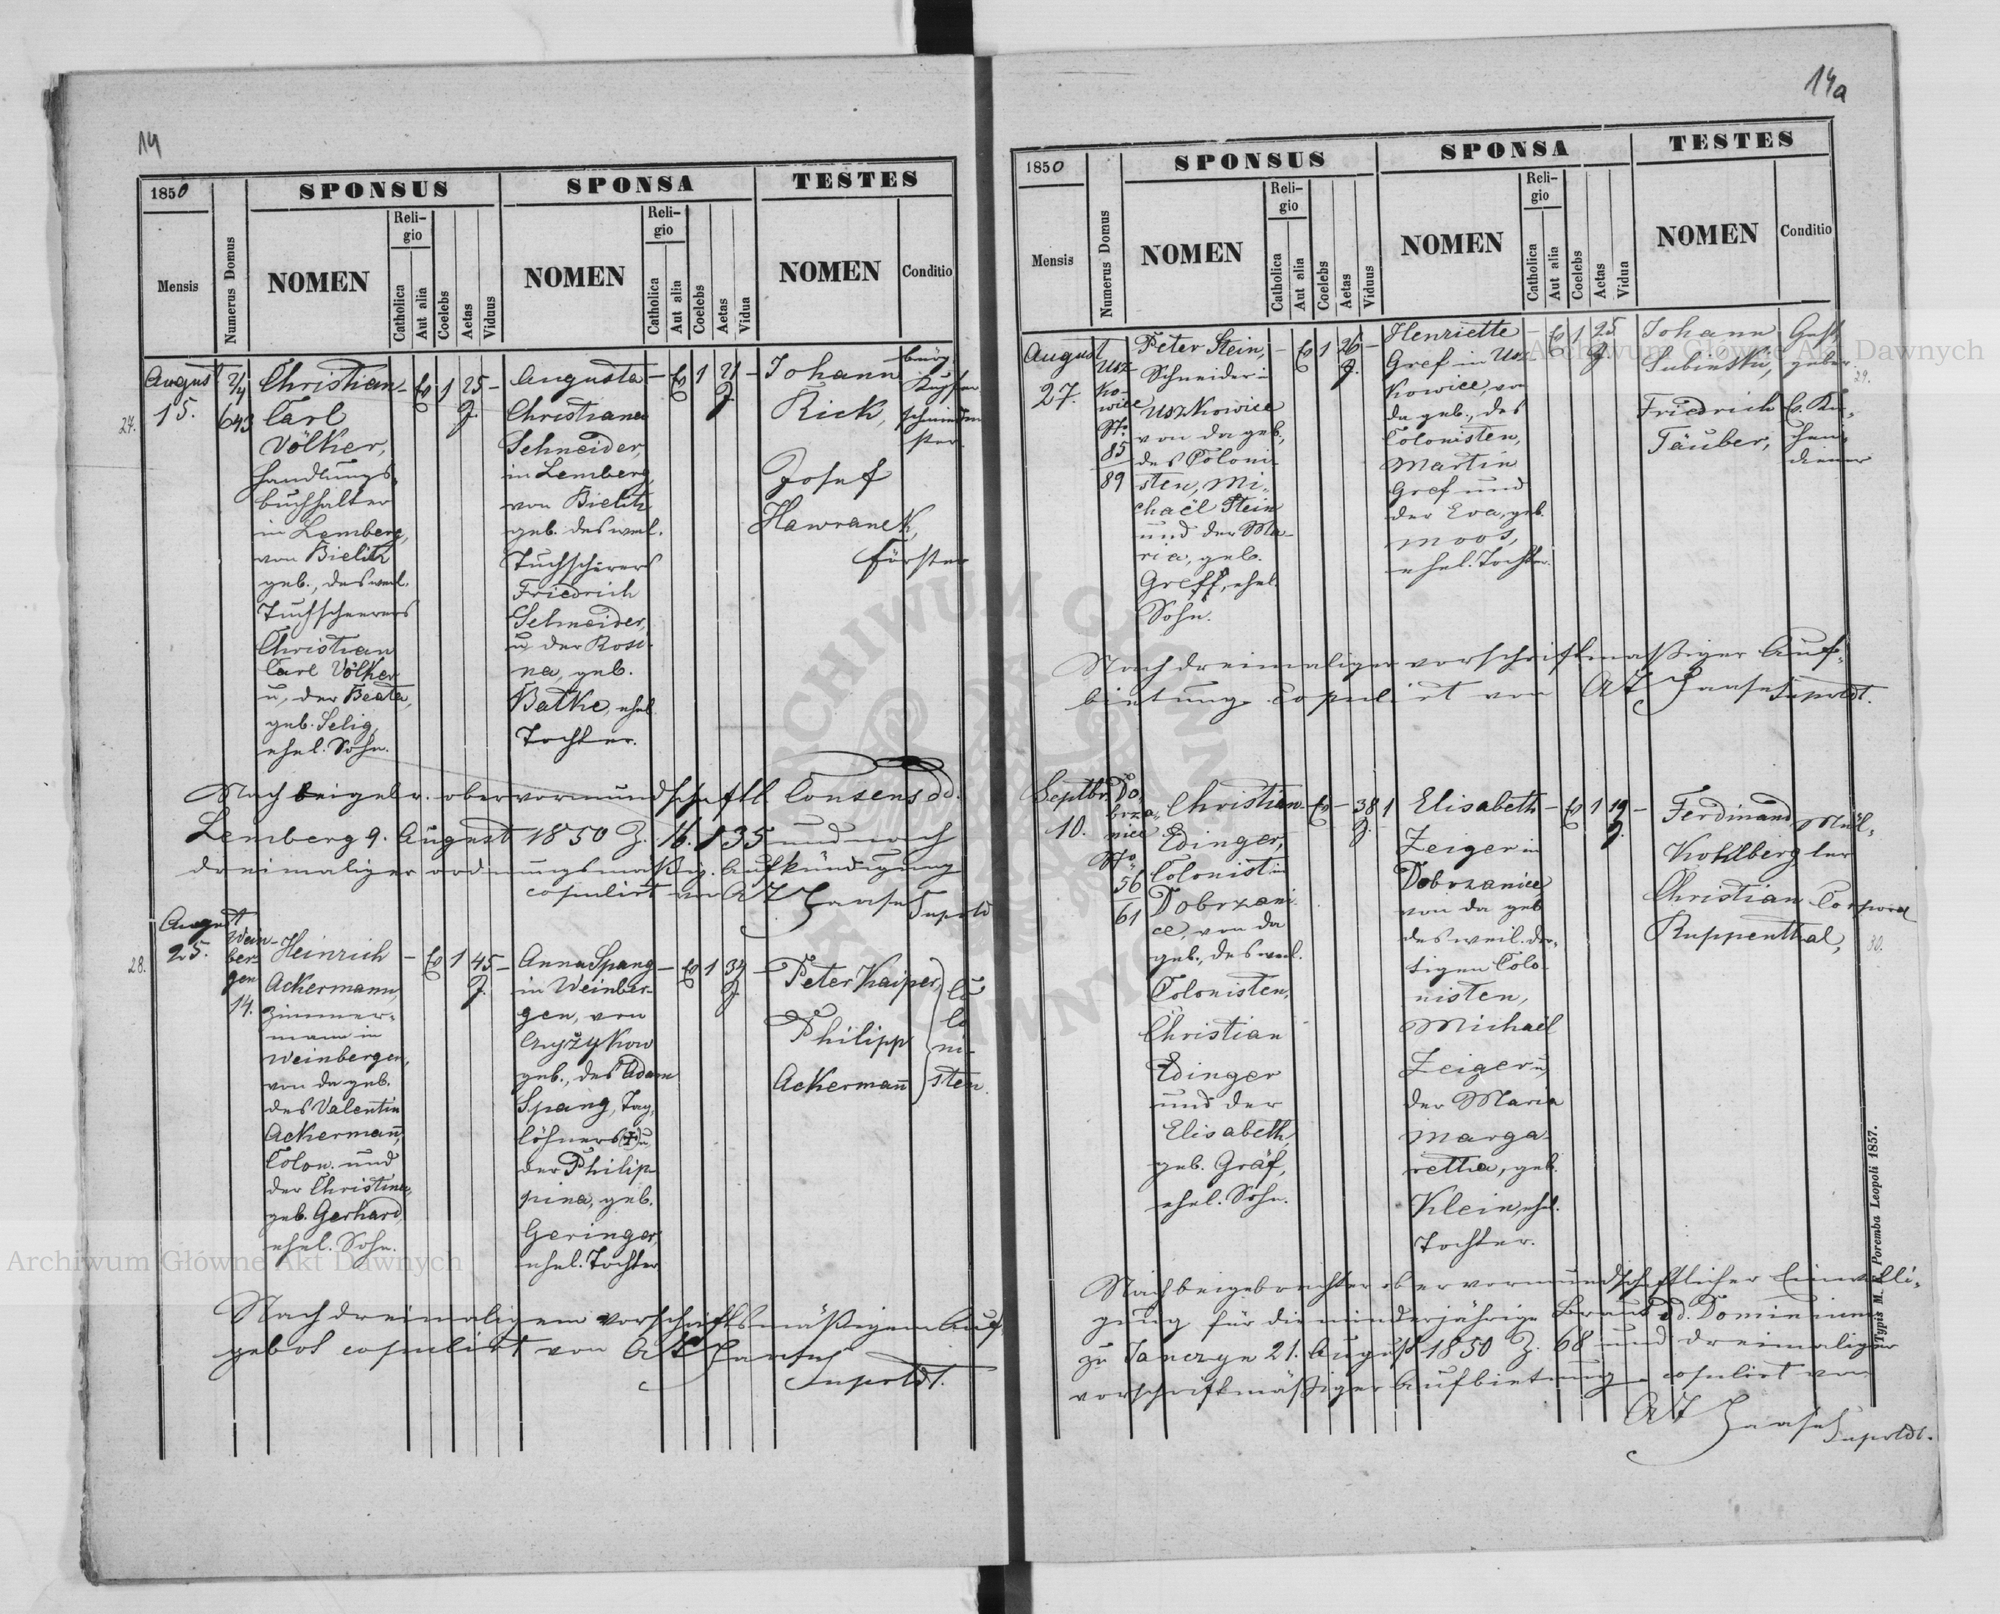 14
1850
Mensis
Numerus Domus
SPONSUS
NOMEN
Religio
Catholica
Aut alia
Coelebs
Aetas
Viduus
SPONSA
NOMEN
Religio
Catholica
Aut alia
Coelebs
Aetas
Vidua
TESTES
NOMEN
Conditio
27.
August
15.
2/4
643
Christian
Carl
Völker,
Handlungs-
buchhalter
in Lemberg,
von Bielitz
geb., des weil.
Tuchscheerers
Christian
Carl Völker
u. der Beata,
geb. Selig,
ehel. Sohn.
– Ev 1 25 –
J.
Augusta
Christiana
Schneider,
in Lemberg,
von Bielitz
geb. des weil.
Tuchscherers
Friedrich
Schneider,
u. der Rosi-
na, geb.
Bathe, ehel.
Tochter.
– Ev 1 21 –
J.
Johann
Rick,
bürg.
Kupfer
schmied
Josef
Hawranek,
Förster
Nach beigebr. obervormundschaftl. Consens dd.
Lemberg 9. August 1850 Z. 16.835 und nach
dreimaliger ordnungsmäßig. Aufkündigung
copulirt von AT Haase Supoldt
28.
August
25.
Wein-
ber-
gen
14.
Heinrich
Ackermann,
Zimmer-
mann in
Weinbergen,
von da geb.
des Valentin
Ackermann,
Colon. und
der Christina,
geb. Gerhard,
ehel. Sohn.
– Ev 1 45 –
J.
Anna Spang
in Weinber-
gen, von
Chyżykow
geb., des Adam
Spang, Tag-
löhners (+) u.
der Philip-
pina, geb.
Geringer,
ehel. Tochter
– Ev 1
J.
Peter Kaiper,
Philipp
Ackermann
Co
lo
ni-
sten.
Nach dreimaligem vorschriftsmäßigem Auf-
gebot copulirt von AT Haase
Supoldt.
14a
1850
Mensis
Numerus Domus
SPONSUS
NOMEN
Religio
Catholica
Aut alia
Coelebs
Aetas
Viduus
SPONSA
NOMEN
Religio
Catholica
Aut alia
Coelebs
Aetas
Vidua
TESTES
NOMEN
Conditio
August
27.
Usz-
ko-
wice
No
85
89
Peter Stein,
Schneider in
Uszkowice
von da geb.,
des Coloni-
sten, Mi-
chaël Stein
und der Ma-
ria, geb.
Greff, ehel.
Sohn.
– Ev 1 26 –
J.
Henriette
Gref in Usz-
kowice, von
da geb., des
Colonisten,
Martin
Gref und
der Eva, geb.
Moos,
ehel. Tochter.
– Ev 1 25
J.
Johann
Lubinski,
Gast
geber
Friedrich
Täuber,
Ev. Kir-
chen-
diener
29.
Nach dreimaliger vorschriftmäßiger Auf-
bietung copulirt von AT Haase Supoldt.
Septbr.
10.
Do-
brza-
nice
No
56
61
Christian
Edinger,
Colonist in
Dobrzani-
ce, von da
geb., des weil.
Colonisten,
Christian
Edinger
und der
Elisabeth,
geb. Gräf,
ehel. Sohn.
– Ev – 38 1
J.
Elisabeth
Zeiger in
Dobrzanice
von da geb.
des weil. dor-
tigen Colo-
nisten,
Michaël
Zeiger u.
der Maria
Marga-
retha, geb.
Klein, ehel.
Tochter.
– Ev 1 19 –
J.
Ferdinand
Kohlberg
Mül-
ler
Christian
Ruppenthal,
30.
Nach beigebrachter obervormundschaftlicher Einwilli-
gung für die minderjährige Braut dd. Dominium
zu Janczyn 21. August 1850 Z. 68 und dreimaliger
vorschriftmäßiger Aufbietung copulirt von
AT Haase Supoldt.
Typis M. F. Poremba Leopoli 1857.
Archiwum Główne Akt Dawnych
Archiwum Główne Akt Dawnych
ARCHIWUM GŁÓWNE AKT DAWNYCH